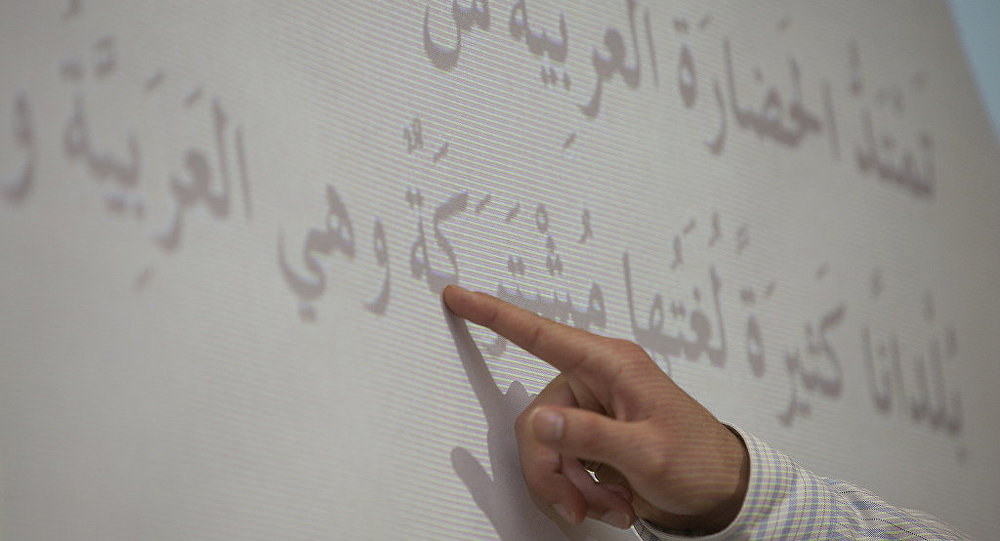 تَمْتَدُّ الحَضارَة العربِية من
بُلْداناً كَثيرَةً لُغَتُها مُشْتَرَكَةٌ وهي العَرَبِيَّةُ و